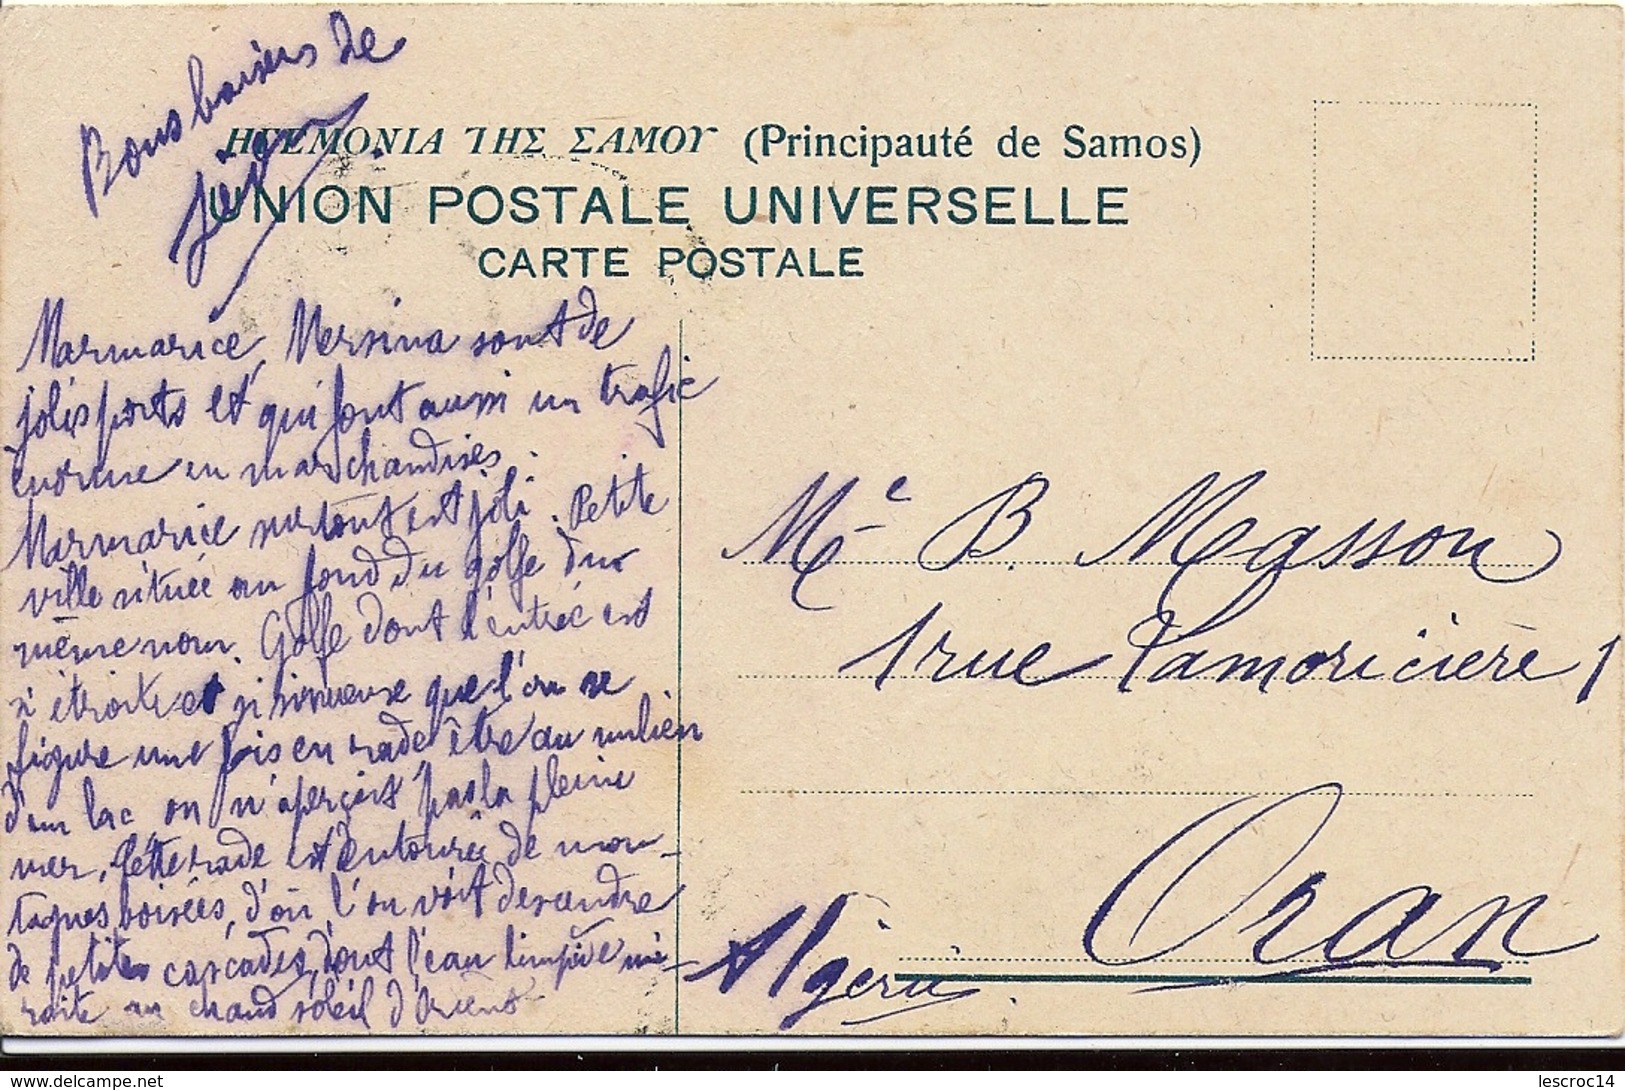 Bons baisers de
ΗΓΕΜΟΝΙΑ ΤΗΣ ΣΑΜΟΥ (Principauté de Samos)
UNION POSTALE UNIVERSELLE
CARTE POSTALE
Marmarice, Mersina sont de
jolis ports et qui font aussi un trafic
enorme en marchandises.
Marmarice surtout est joli. Petite
ville située au fond du golfe du
même nom. Golfe dont l'entrée est
si étroite et si sinueuse que l'on se
figure une fois en rade être au milieu
d'un lac on n'aperçoit pas la pleine
mer. Cette rade est entourée de mon-
tagnes boisées, d'où l'on voit descendre
de petites cascades, dont l'eau limpide mi-
roite au chaud soleil d'Orient
Me B. Masson
1 rue Lamoricière 1
Oran
Algérie.
delcampe.net
lescroc14